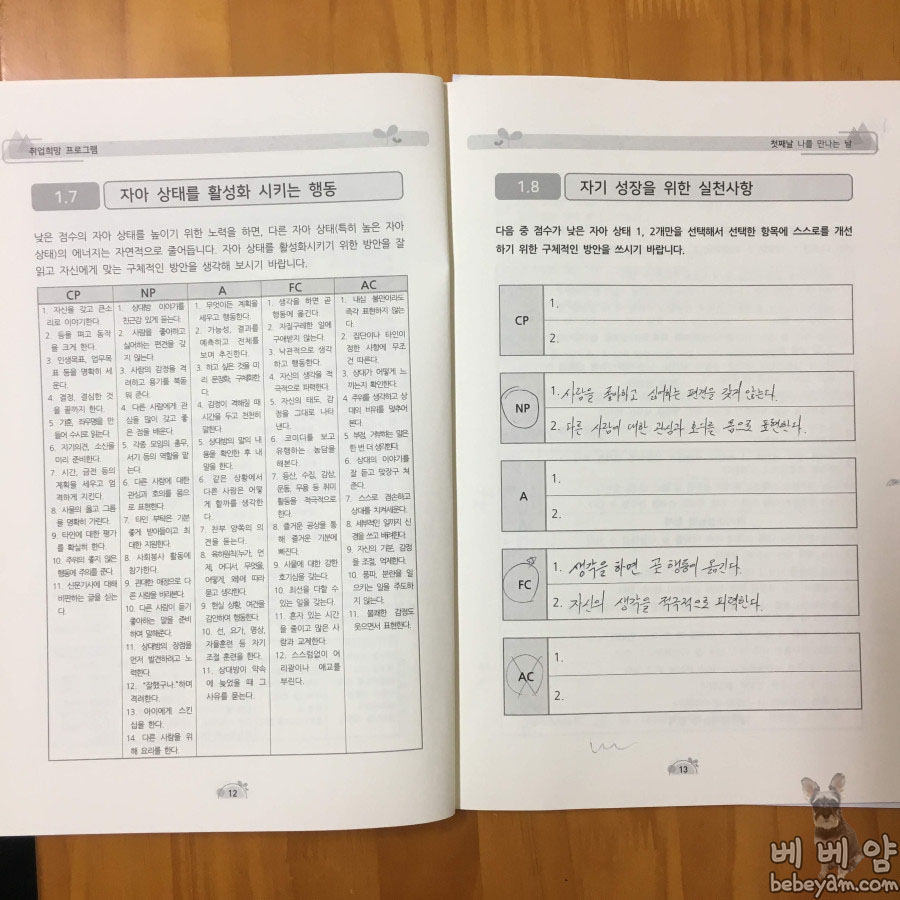 취업희망 프로그램
1.7 자아 상태를 활성화 시키는 행동
낮은 점수의 자아 상태를 높이기 위한 노력을 하면, 다른 자아 상태(특히 높은 자아
상태)의 에너지는 자연적으로 줄어듭니다. 자아 상태를 활성화시키기 위한 방안을 잘
읽고 자신에게 맞는 구체적인 방안을 생각해 보시기 바랍니다.
CP
1. 자신을 갖고 큰소
리로 이야기한다.
2. 등을 펴고 동작
을 크게 한다.
3. 인생목표, 업무목
표 등을 명확히 세
운다.
4. 결정, 결심한 것
을 끝까지 한다.
5. 가훈, 좌우명을 만
들어 수시로 읽는다.
6. 자기의견, 소신을
미리 준비한다.
7. 시간, 금전 등의
계획을 세우고 엄
격하게 지킨다.
8. 사물의 옳고 그름
을 명확히 가린다.
9. 타인에 대한 평가
를 확실히 한다.
10. 주위의 좋지 않은
행동에 주의를 준다.
11. 신문기사에 대해
비판하는 글을 싣는
다.
NP
1. 상대방 이야기를
친근감 있게 듣는다.
2. 사람을 좋아하고
싫어하는 편견을 갖
지 않는다.
3. 사람의 감정을 격
려하고 용기를 북돋
워 준다.
4. 다른 사람에게 관
심을 많이 갖고 좋
은 점을 배운다.
5. 각종 모임의 총무,
서기 등의 역할을 맡
는다.
6. 다른 사람에 대한
관심과 호의를 몸으
로 표현한다.
7. 타인 부탁은 기분
좋게 받아들이고 최
대한 지원한다.
8. 사회봉사 활동에
참가한다.
9. 관대한 애정으로 다
른 사람을 바라본다.
10. 다른 사람이 듣기
좋아하는 말을 준비
하며 말해준다.
11. 상대방의 장점을
먼저 발견하려고 노
력한다.
12. "잘했구나."하며
격려한다.
13. 아이에게 스킨
십을 한다.
14. 다른 사람을 위
해 요리를 한다.
A
1. 무엇이든 계획을
세우고 행동한다.
2. 가능성, 결과를
예측하고 전체를
보며 추진한다.
3. 하고 싶은 것을 미
리 문장화, 구체화한
다.
4. 감정이 격해질 때
시간을 두고 천천히
말한다.
5. 상대방의 말의 내
용을 확인한 후 내
말을 한다.
6. 같은 상황에서
다른 사람은 어떻
게 할까를 생각한
다.
7. 전부 양쪽의 의
견을 듣는다.
8. 육하원칙(누가, 언
제, 어디서, 무엇을,
어떻게, 왜)에 따라
묻고 생각한다.
9. 현실 상황, 여건을
감안하며 행동한다.
10. 선, 요가, 명상,
자율훈련 등 자기
조절 훈련을 한다.
11. 상대방이 약속
에 늦었을 때 그
사유를 묻는다.
FC
1. 생각을 하면 곧
행동에 옮긴다.
2. 자질구레한 일에
구애받지 않는다.
3. 낙관적으로 생각
하고 행동한다.
4. 자신의 생각을 적
극적으로 피력한다.
5. 자신의 태도, 감
정을 그대로 나타
낸다.
6. 코미디를 보고
유행하는 농담을
해본다.
7. 등산, 수집, 감상,
운동, 무용 등 취미
활동을 적극적으로
한다.
8. 즐거운 공상을 통
해 즐거운 기분에
빠진다.
9. 사물에 대한 강한
호기심을 갖는다.
10. 최선을 다할 수
있는 일을 갖는다.
11. 혼자 있는 시간
을 줄이고 많은 사
람과 교제한다.
12. 스스럼없이 어
리광이나 애교를
부린다.
AC
1. 내심 불만이라도
즉각 표현하지 않는
다.
2. 집단이나 타인이
정한 사항에 무조
건 따른다.
3. 상대가 어떻게 느
끼는지 확인한다.
4. 주위를 생각하고 상
대의 비위를 맞추어
본다.
5. 부정, 거부하는 말은
한 번 더 생각한다.
6. 상대의 이야기를
잘 듣고 맞장구 쳐
준다.
7. 스스로 겸손하고
상대를 치켜세운다.
8. 세부적인 일까지 신
경을 쓰고 배려한다.
9. 자신의 기분, 감정
을 조절, 억제한다.
10. 풍파, 분란을 일
으키는 일을 주도하
지 않는다.
11. 불쾌한 감정도
웃으면서 표현한다.
12
첫째날 나를 만나는 날
1.8 자기 성장을 위한 실천사항
다음 중 점수가 낮은 자아 상태 1, 2개만을 선택해서 선택한 항목에 스스로를 개선
하기 위한 구체적인 방안을 쓰시기 바랍니다.
CP
1.
2.
NP
1. 사람을 좋아하고 싫어하는 편견을 갖지 않는다.
2. 다른 사람에 대한 관심과 호의를 몸으로 표현한다.
A
1.
2.
FC
1. 생각을 하면 곧 행동에 옮긴다.
2. 자신의 생각을 적극적으로 피력한다.
AC
1.
2.
13
베베얌
bebeyam.com